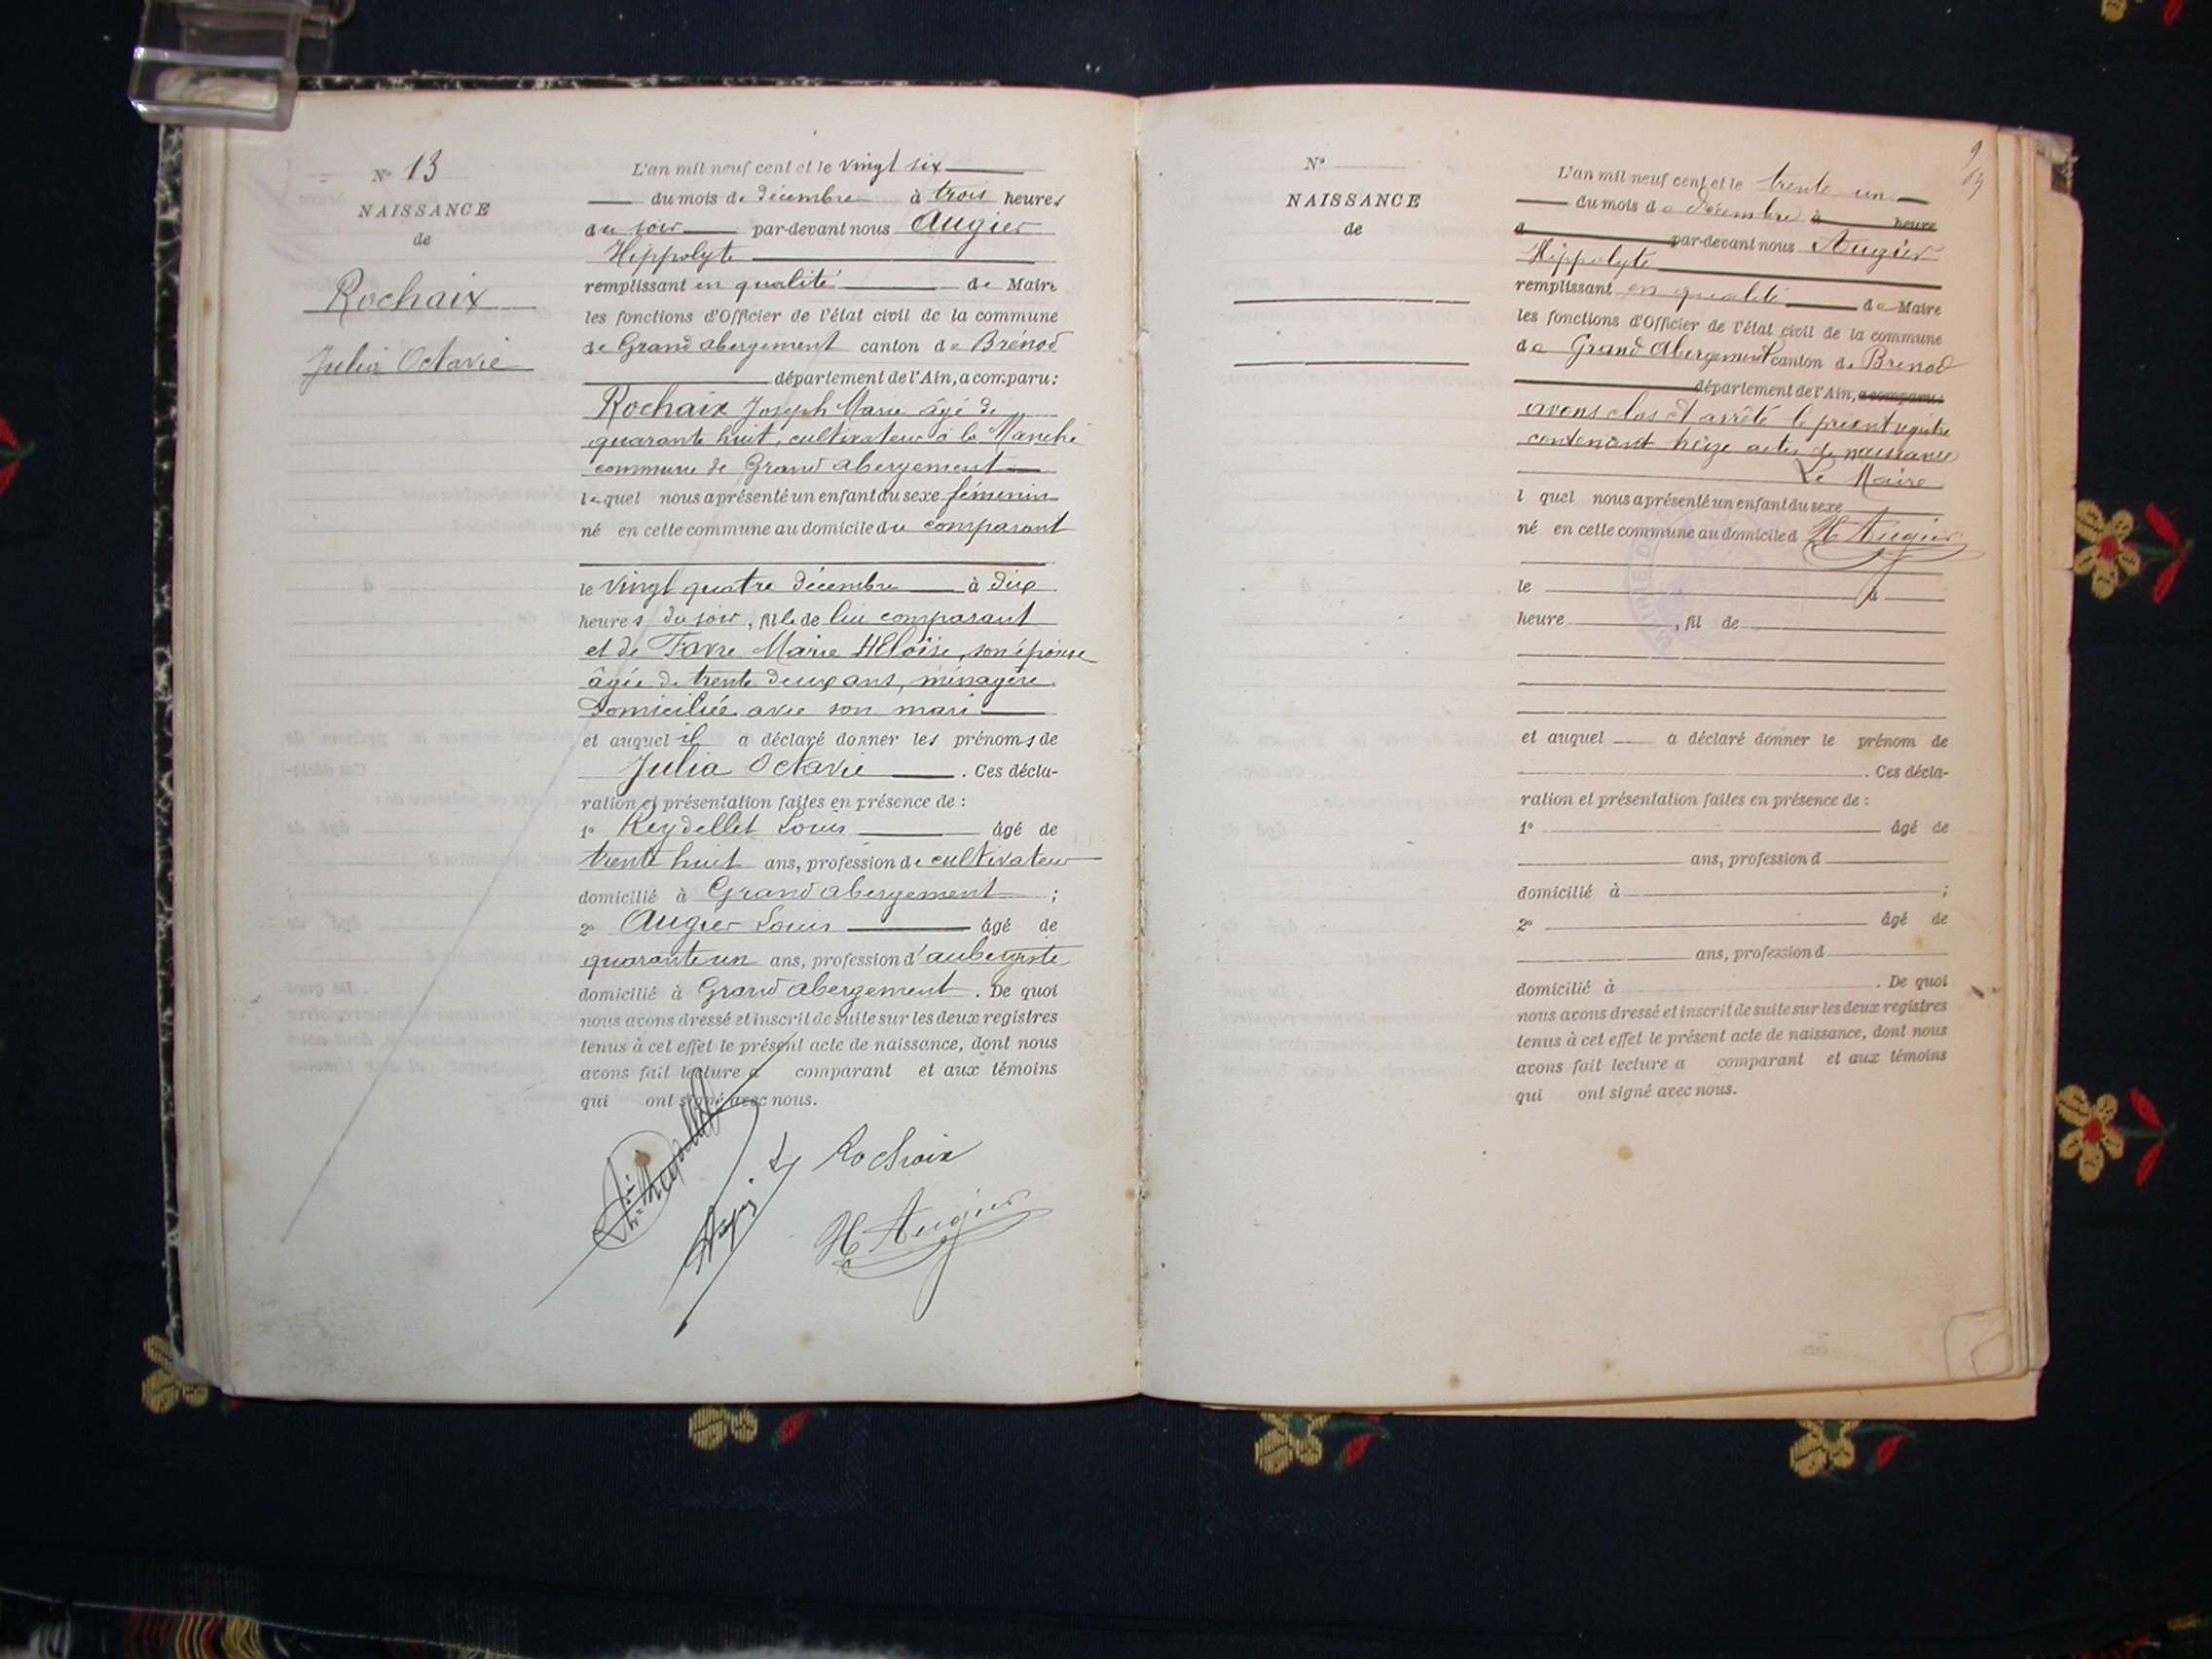 N° 13
NAISSANCE
de
Rochaix
Julia Octavie
L'an mil neuf cent et le vingt six
du mois de décembre à trois heures
du soir par-devant nous Augier
Hippolyte
remplissant en qualité de Maire
les fonctions d'Officier de l'état civil de la commune
de Grand abergement canton de Brénod
département de l'Ain, a comparu :
Rochaix Joseph Marie âgé de
quarante huit, cultivateur à la Manche
commune de Grand abergement
lequel nous a présenté un enfant du sexe féminin
né en cette commune au domicile du comparant
le vingt quatre décembre à dix
heures du soir, fille de lui comparant
et de Favre Marie Héloïse, son épouse
âgée de trente deux ans, ménagère
domiciliée avec son mari
et auquel il a déclaré donner les prénoms de
Julia Octavie . Ces décla-
ration et présentation faites en présence de :
1° Reydellet Louis âgé de
trente huit ans, profession de cultivateur
domicilié à Grand abergement ;
2° Augier Louis âgé de
quarante un ans, profession d'aubergiste
domicilié à Grand abergement . De quoi
nous avons dressé et inscrit de suite sur les deux registres
tenus à cet effet le présent acte de naissance, dont nous
avons fait lecture a comparant et aux témoins
qui ont signé avec nous.
Reydellet
Augier L
Rochaix
H Augier
N°
NAISSANCE
de
L'an mil neuf cent et le trente un
du mois de décembre à heure
d par-devant nous Augier
Hippolyte
remplissant en qualité de Maire
les fonctions d'Officier de l'état civil de la commune
de Grand Abergement canton de Brénod
département de l'Ain, a comparu :
avons clos et arrêté le présent registre
contenant treize actes de naissance
Le Maire
l quel nous a présenté un enfant du sexe
né en cette commune au domicile d H Augier
le à
heure , fil de
et auquel a déclaré donner le prénom de
. Ces décla-
ration et présentation faites en présence de :
1° âgé de
ans, profession d
domicilié à ;
2° âgé de
ans, profession d
domicilié à . De quoi
nous avons dressé et inscrit de suite sur les deux registres
tenus à cet effet le présent acte de naissance, dont nous
avons fait lecture a comparant et aux témoins
qui ont signé avec nous.